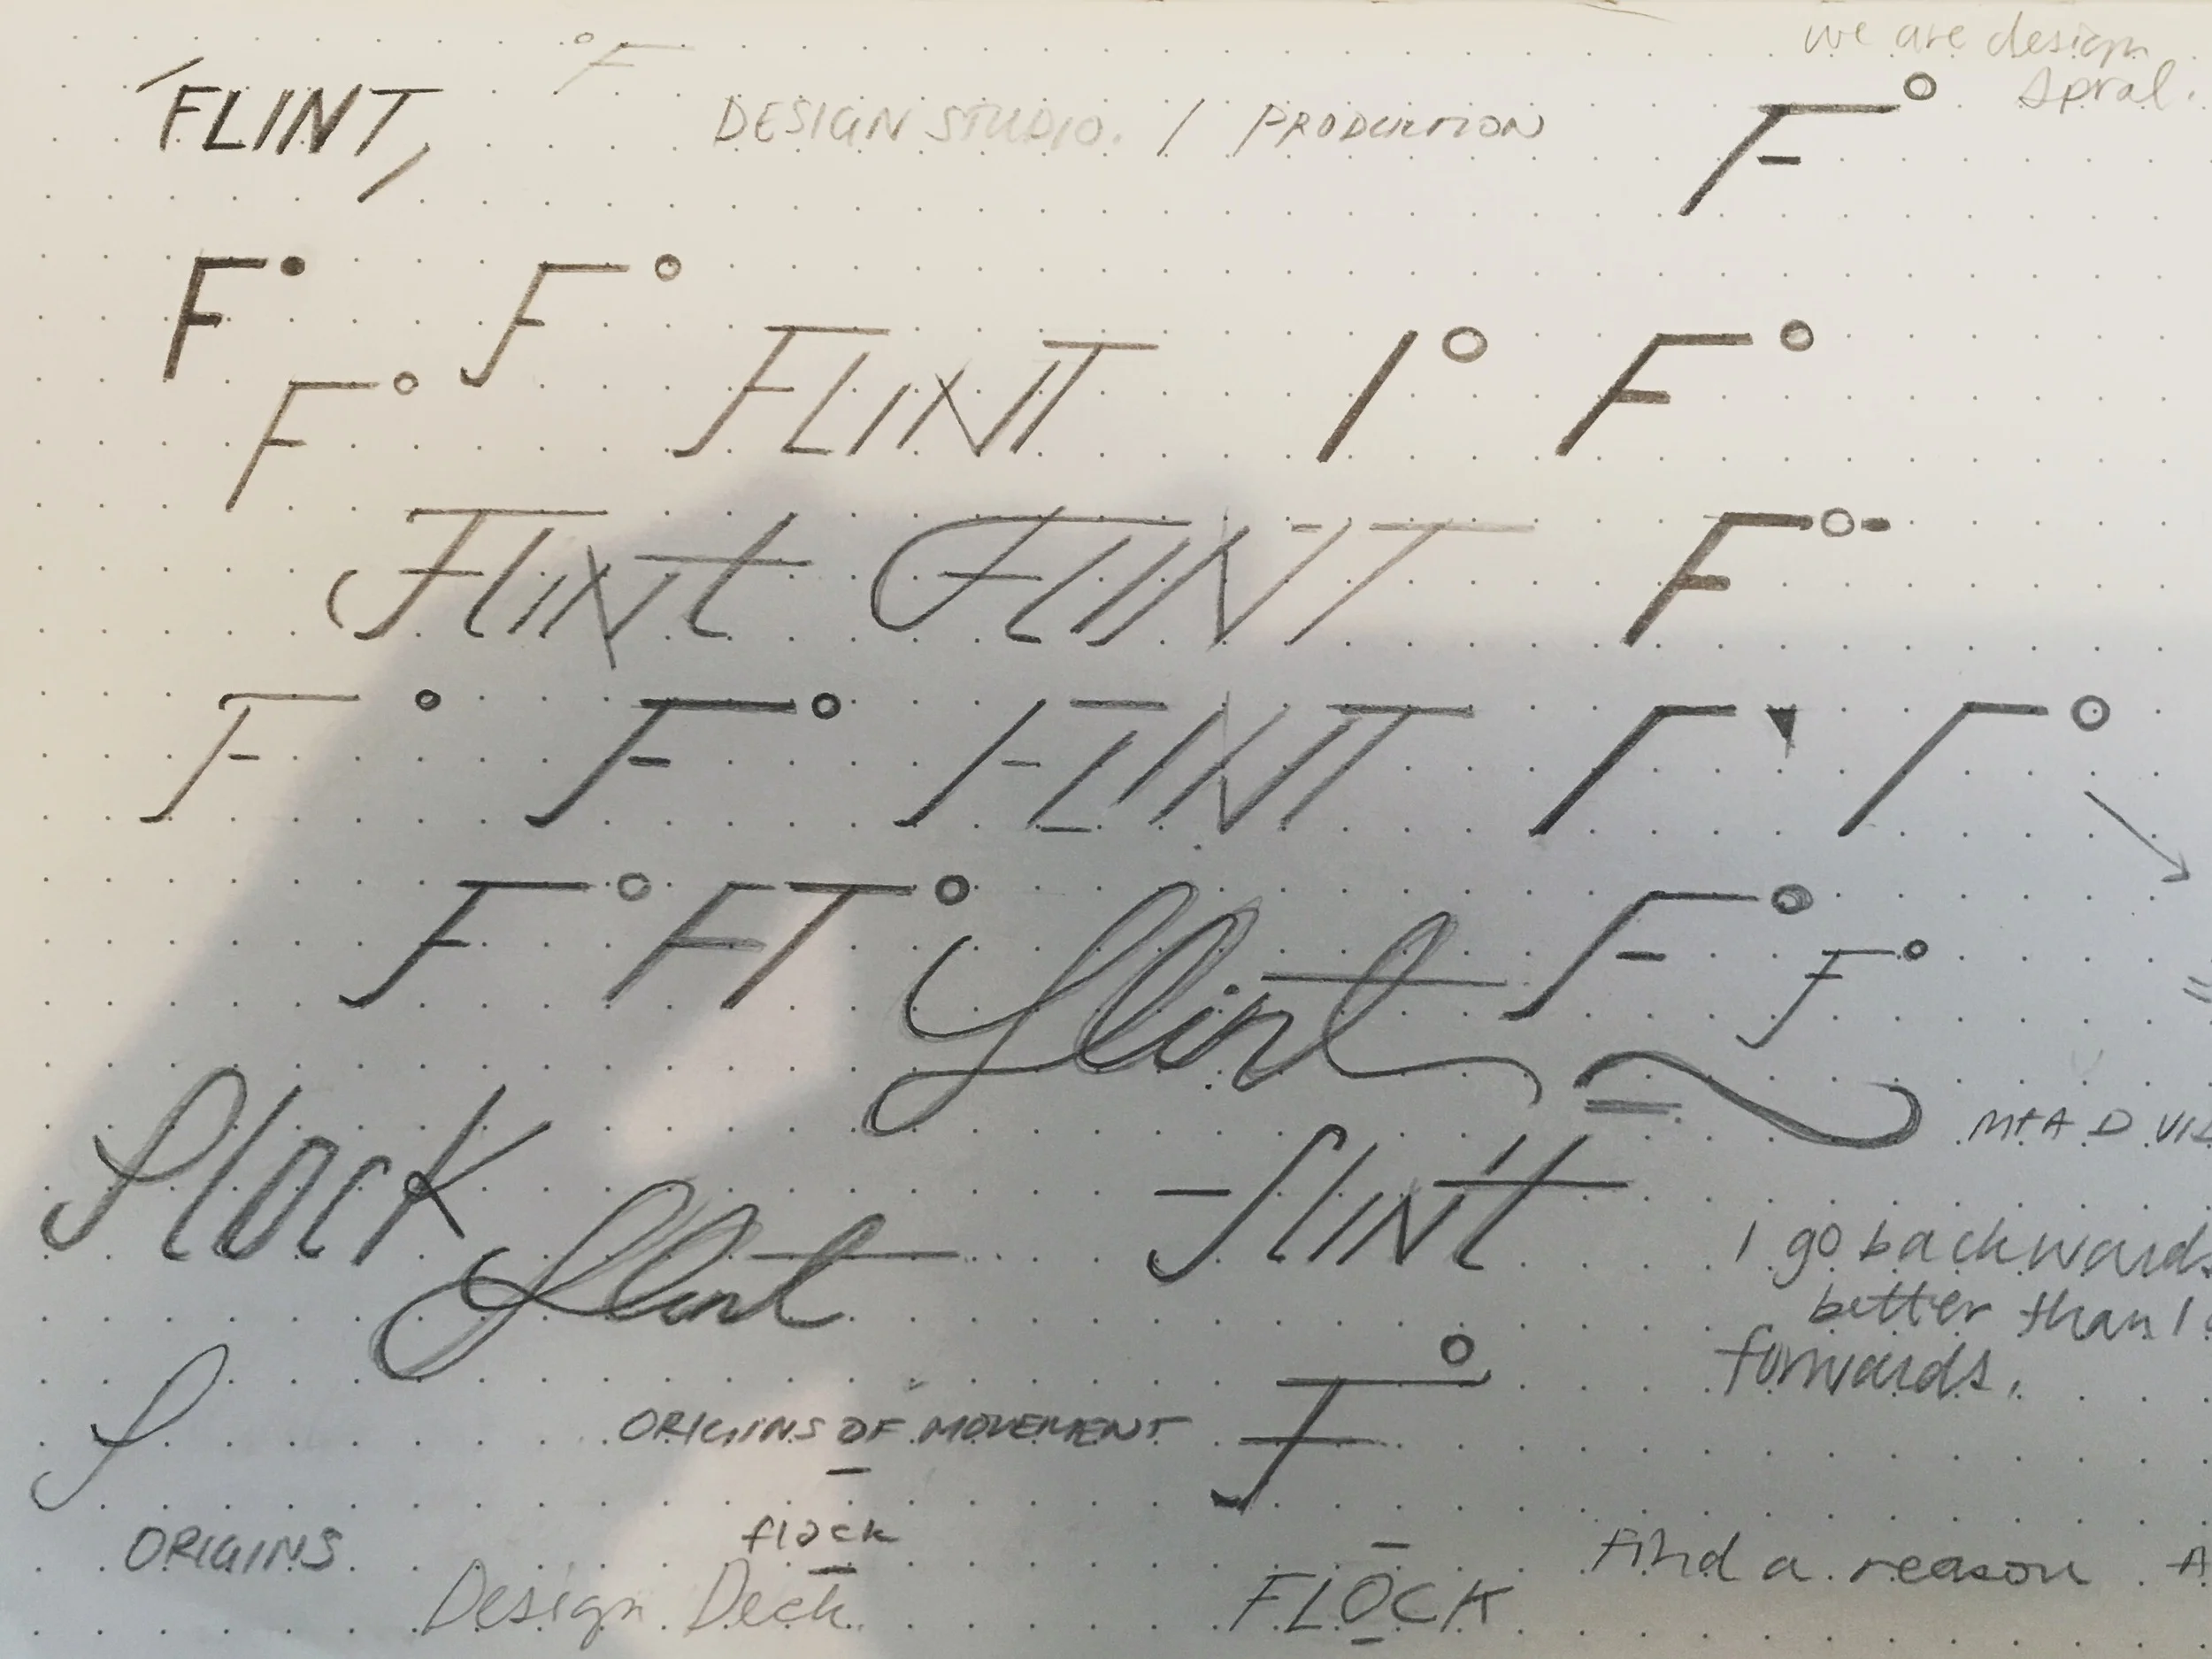 we are design
Spral.
F°
FLINT,
DESIGN STUDIO. / PRODUCTION
F°
F•
F°
F°
FLINT
I°
F°
Flint
FLINT
F°-
F°
F°
FLINT
F°
FT°
flint
F°
F°
flock
flint
flint
I go backwards
better than I
forwards.
F°
f
ORIGINS OF MOVEMENT
ORIGINS
flock
Design Deck.
FLOCK
find a reason. A